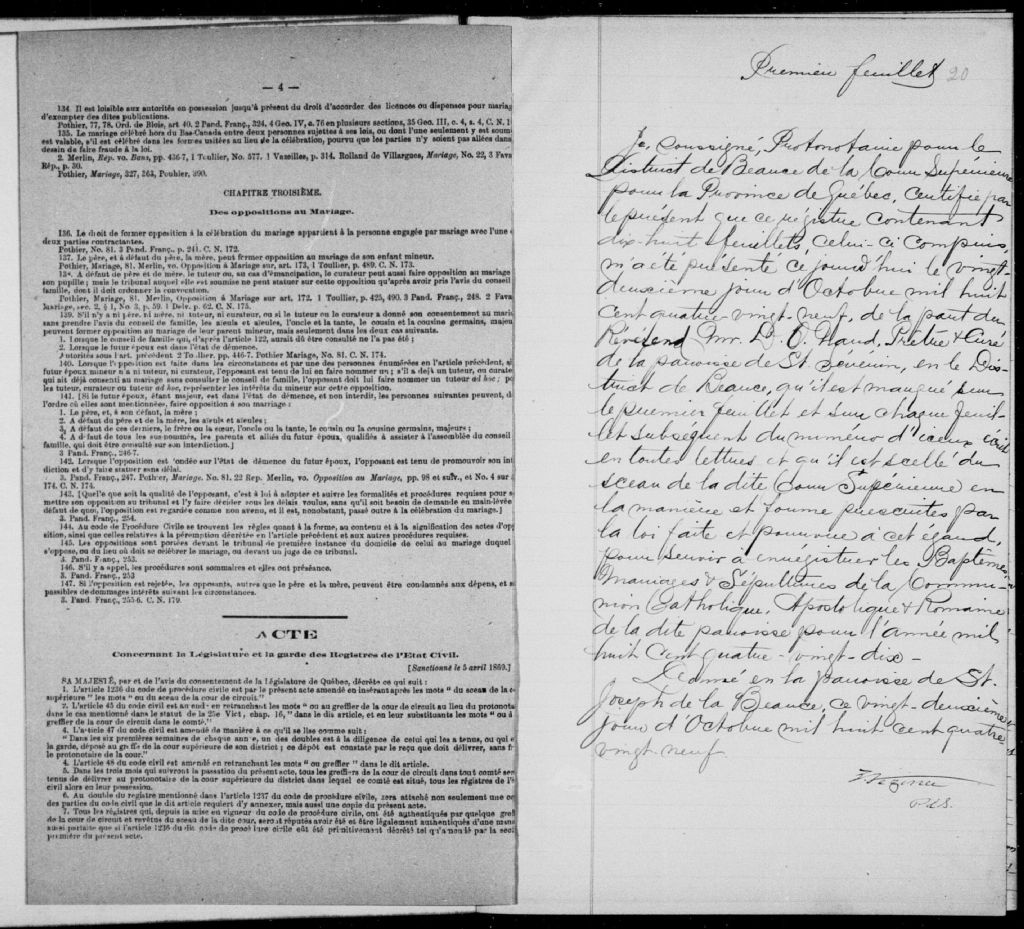 — 4 —
134 Il est loisible aux autorités en possession jusqu'à présent du droit d'accorder des licences ou dispenses pour mariag
d'exempter des dites publications.
Pothier, 77, 78. Ord. de Blois, art 40. 2 Pand. Franç., 324, 4 Geo. IV, c. 76 en plusieurs sections, 35 Geo. III, c. 4, s. 4, C. N. 1
135. Le mariage célébré hors du Bas-Canada entre deux personnes sujettes à ses lois, ou dont l'une seulement y est soumi
est valable, s'il est célébré dans les formes usitées au lieu de la célébration, pourvu que les parties n'y soient pas allées dans
dessin de faire fraude à la loi.
2. Merlin, Rép. vo. Bans, pp. 436-7, 1 Toullier, No. 577. 1 Vazeilles, p. 314. Rolland de Villargues, Mariage, No. 22, 3 Fava
Rép., p. 30.
Pothier, Mariage, 327, 363, Pouhier, 390.
CHAPITRE TROISIÈME.
Des oppositions au Mariage.
136. Le droit de former opposition à la célébration du mariage appartient à la personne engagée par mariage avec l'une d
deux parties contractantes.
Pothier, No. 81. 3 Pand. Franç., p. 241. C. N. 172.
137. Le père, et à défaut du père, la mère, peut former opposition au mariage de son enfant mineur.
Pothier, Mariage, 81. Merlin, vo. Opposition à Mariage, sur art. 173, 1 Toullier, p. 489. C. N. 173.
138. A défaut de père et de mère, le tuteur ou, au cas d'émancipation, le curateur peut aussi faire opposition au mariage
son pupille; mais le tribunal auquel elle est soumise ne peut statuer sur cette opposition qu'après avoir pris l'avis du conseil
famille, dont il doit ordonner la convocation.
Pothier, Mariage, 81. Merlin, Opposition à Mariage sur art. 172, 1 Toullier, p. 425, 490. 3 Pand. Franç., 248. 2 Fava
Mariage, sec. 2, § 1, No. 3, p. 59. 1 Delv. p. 62. C. N. 175.
139. S'il n'y a ni père, ni mère, ni tuteur, ni curateur, ou si le tuteur ou le curateur a donné son consentement au maria
sans prendre l'avis du conseil de famille, les aïeuls et aïeules, l'oncle et la tante, le cousin et la cousine germains, majeu
peuvent former opposition au mariage de leur parent mineur, mais seulement dans les deux cas suivants.
1. Lorsque le conseil de famille qui, d'après l'article 122, aurait dû être consulté ne l'a pas été;
2. Lorsque le futur époux est dans l'état de démence.
Autorités sous l'art. précédent 2 Toullier, pp. 446-7. Pothier Mariage, No. 81. C. N. 174.
140. Lorsque l'opposition est faite dans les circonstances et par une des personnes énumérées en l'article précédent, si
futur époux mineur n'a ni tuteur, ni curateur, l'opposant est tenu de lui en faire nommer un; s'il a déjà un tuteur, ou curate
qui ait déjà consenti au mariage sans consulter le conseil de famille, l'opposant doit lui faire nommer un tuteur ad hoc; po
les tuteur, curateur ou tuteur ad hoc, représenter les intérêts du mineur sur cette opposition.
141. [Si le futur époux, étant majeur, est dans l'état de démence, et non interdit, les personnes suivantes peuvent, d
l'ordre où elles sont mentionnées, faire opposition à son mariage:
1. Le père, et, à son défaut, la mère;
2. A défaut du père et de la mère, les aïeuls et aïeules;
3. A défaut de ces derniers, le frère ou la sœur, l'oncle ou la tante, le cousin ou la cousine germains, majeurs;
4. A défaut de tous les sus-nommés, les parents et alliés du futur époux, qualifiés à assister à l'assemblée du conseil
famille, qui doit être consulté sur son interdiction.]
3 Pand. Franç., 246-7.
142. Lorsque l'opposition est fondée sur l'état de démence du futur époux, l'opposant est tenu de promouvoir son int
diction et d'y faire statuer sans délai.
3. Pand. Franç., 247. Pothier, Mariage. No. 81. 22 Rep. Merlin, vo. Opposition au Mariage, pp. 98 et suiv., et No. 4 sur
174. C. N. 174.
143. [Quelle que soit la qualité de l'opposant, c'est à lui à adopter et suivre les formalités et procédures requises pour s
mettre son opposition au tribunal et l'y faire décider sous les délais voulus, sans qu'il soit besoin de demande en main-levée
défaut de quoi, l'opposition est regardée comme non avenu, et il est, nonobstant, passé outre à la célébration du mariage.]
3. Pand. Franç., 254.
144. Au code de Procédure Civile se trouvent les règles quant à la forme, au contenu et à la signification des actes d'opp
sition, ainsi que celles relatives à la péremption décrétée en l'article précédent et aux autres procédures requises.
145. Les oppositions sont portées devant le tribunal de première instance du domicile de celui au mariage duquel
s'oppose, ou du lieu où doit se célébrer le mariage, ou devant un juge de ce tribunal.
4. Pand. Franç., 253.
146. S'il y a appel, les procédures sont sommaires et elles ont préséance.
3. Pand. Franç., 253
147. Si l'opposition est rejetée, les opposants, autres que le père et la mère, peuvent être condamnés aux dépens, et s
passibles de dommages intérêts suivant les circonstances.
3. Pand. Franç., 255-6. C. N. 179.
ACTE
Concernant la Législature et la garde des Registres de l'Etat Civil.
[Sanctionné le 5 avril 1869.]
SA MAJESTÉ, par et de l'avis du consentement de la Législature de Québec, décrète ce qui suit:
1. L'article 1236 du code de procédure civile est par le présent acte amendé en insérant après les mots "du sceau de la c
supérieure" les mots "ou du sceau de la cour de circuit."
2. L'article 45 du code civil est amendé en retranchant les mots "ou au greffier de la cour de circuit au lieu du protonota
dans le cas mentionné dans le statut de la 25e Vict, chap. 16," dans le dit article, et en leur substituant les mots "ou a
greffier de la cour de circuit dans le comté."
4. L'article 47 du code civil est amendé de manière à ce qu'il se lise comme suit:
"Dans les six premières semaines de chaque année, un des doubles est à la diligence de celui qui les a tenus, ou qui e
la garde, déposé au greffe de la cour supérieure de son district; ce dépôt est constaté par le reçu que doit délivrer, sans fr
le protonotaire de la cour."
4. L'article 48 du code civil est amendé en retranchant les mots "ou greffier" dans le dit article.
5. Dans les trois mois qui suivront la passation du présent acte, tous les greffiers de la cour de circuit dans tout comté ser
tenus de délivrer au protonotaire de la cour supérieure du district dans lequel ce comté est situé, tous les régistres de l'é
civil alors en leur possession.
6. Au double du registre mentionné dans l'article 1237 du code de procédure civile, sera attaché non seulement une co
des parties du code civil que le dit article requiert d'y annexer, mais aussi une copie du présent acte.
7. Tous les régistres qui, depuis la mise en vigueur du code de procédure civile, ont été authentiqués par quelque gref
de la cour de circuit et revêtus du sceau de la dite cour, seront réputés avoir été et être légalement authentiqués d'une mani
aussi parfaite que si l'article 1236 du dit code de procédure civile eût été primitivement décrété tel qu'amendé par la sect
première du présent acte.
Premier feuillet 20
Je, soussigné, Protonotaire pour le
District de Beauce de la Cour Supérieure
pour la Province de Québec, Certifie par
le présent que ce régistre contenant
dix-huit feuillets, celui-ci compris,
m'a été présenté ce jourd'hui le vingt-
deuxième jour d'Octobre mil huit
cent quatre-vingt-neuf, de la part du
Révérend Mr. D. O. Naud, Prêtre & Curé
de la paroisse de St. Séverin, en le Dis-
trict de Beauce, qu'il est marqué sur
le premier feuillet et sur chaque feuil-
let subséquent du numéro d'iceux écrit
en toutes lettres et qu'il est scellé du
sceau de la dite (Cour Supérieure) en
la manière et forme prescrites par
la loi faite et pourvue à cet égard,
pour servir à enrégistrer les Baptêmes,
Mariages & Sépultures de la Commu-
nion Catholique, Apostolique & Romaine
de la dite paroisse pour l'année mil
huit cent quatre-vingt-dix-
Donné en la paroisse de St.
Joseph de la Beauce, ce vingt-deuxième
jour d'Octobre mil huit cent quatre-
vingt-neuf.
P.C.S.